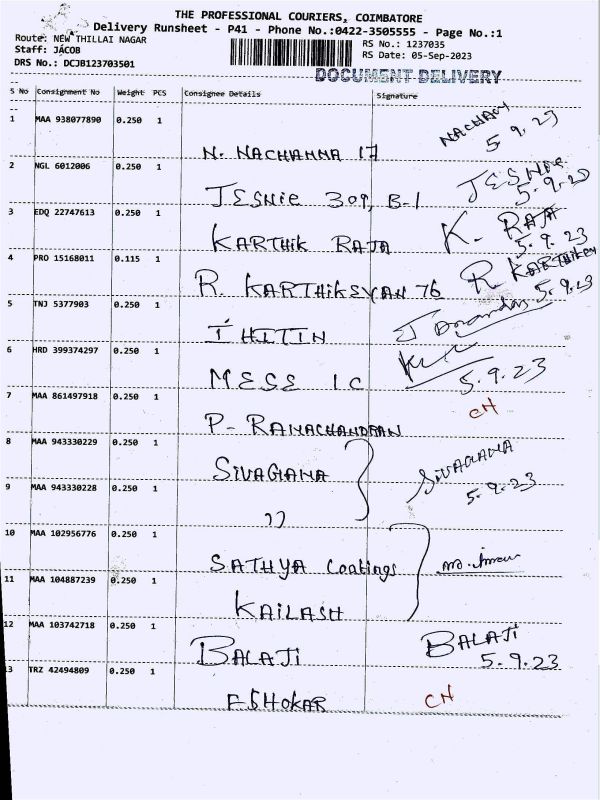 THE PROFESSIONAL COURIERS, COIMBATORE
Delivery Runsheet - P41 - Phone No.:0422-3505555 - Page No.:1
Route: NEW THILLAI NAGAR
RS No.: 1237035
Staff: JACOB
RS Date: 05-Sep-2023
DRS No.: DCJB123703501
DOCUMENT DELIVERY
S No Consignment No Weight PCS Consignee Details Signature
1 MAA 938077890 0.250 1
N. NACHAMMA 17
5.9.23
2 NGL 6012006 0.250 1
JESNIE 309, B-1 JESNIE
5.9.20
3 EDQ 22747613 0.250 1
KARTHIK RAJA K. RAJA
5.9.23
4 PRO 15168011 0.115 1
R. KARTHIKEYAN 76 R KARTHIKEY
5.9.23
5 TNJ 5377903 0.250 1
6 HRD 399374297 0.250 1
MESE 1C 5.9.23
7 MAA 861497918 0.250 1
P- RAMACHANDRAN CH
8 MAA 943330229 0.250 1
SIVAGIANA SIVAGIANA
5.9.23
9 MAA 943330228 0.250 1
"
10 MAA 102956776 0.250 1
SATHYA Coatings
11 MAA 104887239 0.250 1
KAILASH
12 MAA 103742718 0.250 1
BALAJI BALAJI
5.9.23
13 TRZ 42494809 0.250 1
CH